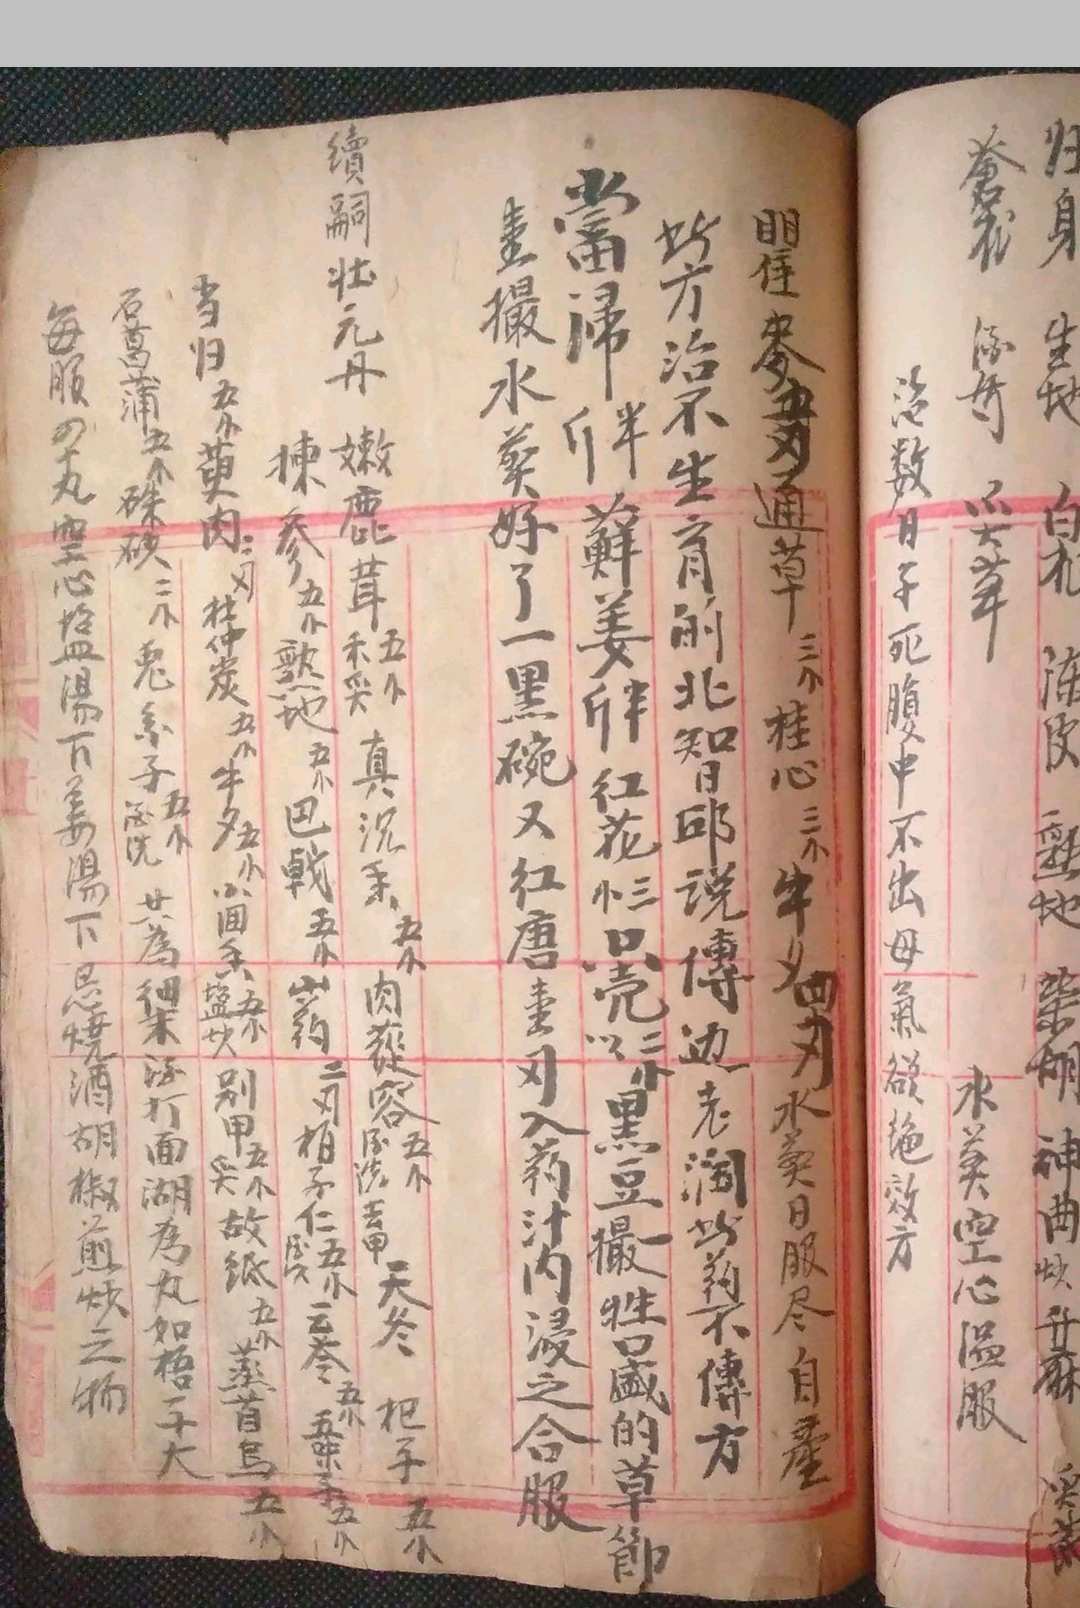 归身 生地 白札 陈皮 熟地 柴胡 神曲炒 升麻
水煎空心温服
治数日子死腹中不出母氣欲绝效方
瞿住麦五刄通草三小桂心三小牛夕四刄水煎日服尽自產
此方治不生育的北智邱说傳边老润此药不傳方
當㷌半斤蘇姜半斤红花三小只壳二小黑豆一撮牲口鹹的草節
壹撮水煎好了一黑碗又红唐壹刄入药汁内浸之合服
續嗣壮元丹 嫩鹿茸五小禾炙 真沉香五小 肉蓯容五小酒洗去甲 天冬 杞子五小
揀參五小熟地五小巴戟五小山药二刄柏子仁五小云苓五小五味子五小
当归五小萸肉二刄杜仲炭五小牛夕五小小茴香五小盐炒别甲五小炙故紙五小蒸首烏五小
石菖蒲五小硃砂二小兎糸子五小酒洗共為細末酒打面湖為丸如梧子大
每服四十丸空心塩湯下姜湯下忌燒酒胡椒煎炒之物